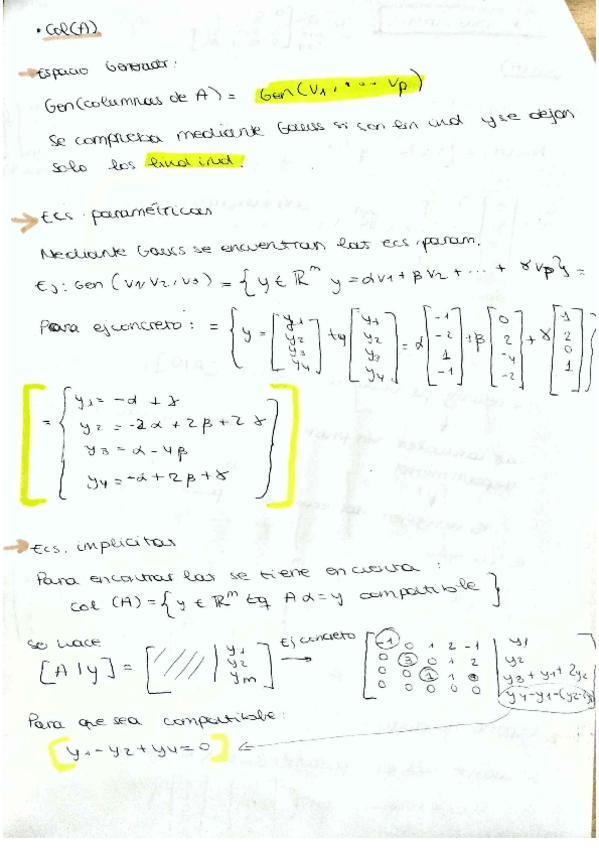 • Col(A)
Espacio Generador:
Gen(columnas de A) = Gen(v1, ... vp)
Se comprueba mediante Gauss si son lin ind y se dejan
solo los lind ind.
Ecs. paramétricas
Mediante Gauss se encuentran las ecs. param.
Ej: Gen (v1, v2, v3) = { y ∈ ℝ^m y = αv1 + βv2 + ... + γvp } =
Para ej concreto: = { y = [y1 y2 y3 y4] tq [y1 y2 y3 y4] = α [-1 -2 1 -1] + β [0 2 -4 -2] + γ [1 2 0 1] }
= { y1 = -α + γ
y2 = -2α + 2β + 2γ
y3 = α - 4β
y4 = -α + 2β + γ }
Ecs. implícitas
Para encontrar las se tiene en cuenta:
Col (A) = { y ∈ ℝ^m tq Aα = y compatible }
Se hace
[A | y] = [ //// | y1 y2 ym ] → Ej concreto
[ -1 0 1 2 -1 | y1
0 3 0 1 2 | y2
0 0 1 1 | y3 + y1 + 2y2
0 0 0 0 0 | y4 - y1 - (y2 -
Para que sea compatible:
[ y1 - y2 + y4 = 0 ]